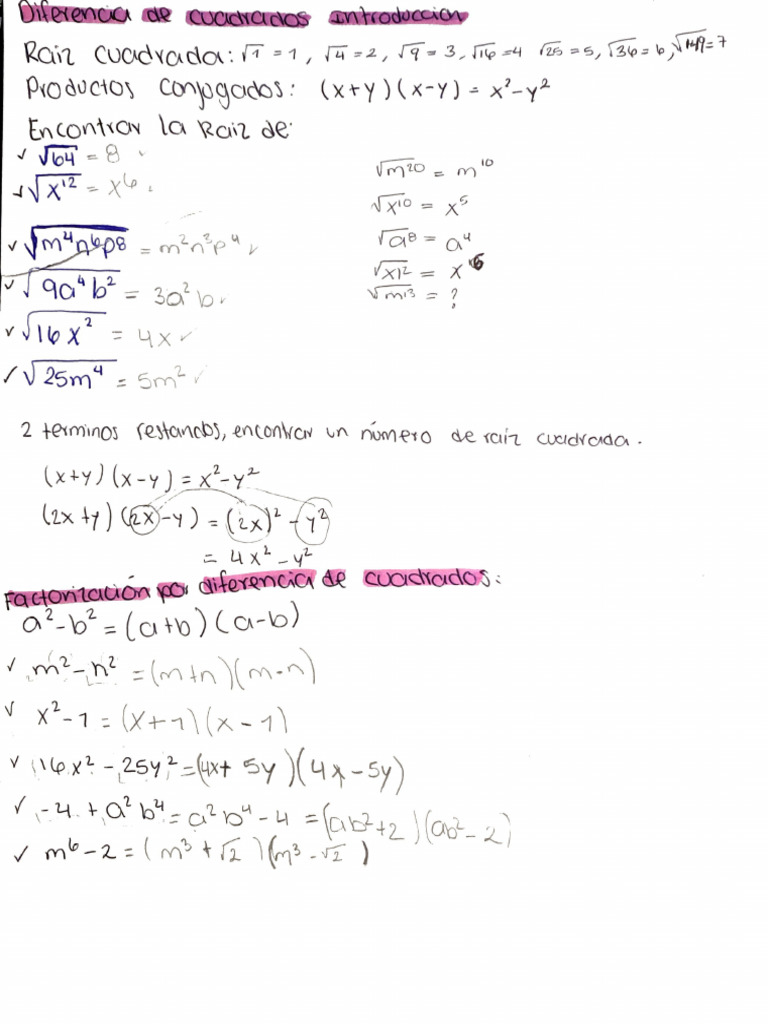 Diferencia de cuadrados introduccion
Raiz cuadrada: √1 = 1, √4 = 2, √9 = 3, √16 = 4 √25 = 5, √36 = 6, √49 = 7
Productos Conjugados: (x+y)(x-y) = x²-y²
Encontrar la Raiz de:
✓ √64 = 8
✓ √x¹² = x⁶
✓ √m⁴n⁶p⁸ = m²n³p⁴ ✓
✓ √9a⁴b² = 3a²b ✓
✓ √16x² = 4x ✓
✓ √25m⁴ = 5m² ✓
√m²⁰ = m¹⁰
√x¹⁰ = x⁵
√a⁸ = a⁴
√x¹² = x⁶
√m¹³ = ?
2 terminos restandos, encontrar un número de raíz cuadrada.
(x+y)(x-y) = x²-y²
(2x+y)(2x-y) = (2x)² - y²
= 4x² - y²
Factorización por diferencia de cuadrados:
a²-b² = (a+b)(a-b)
✓ m²-n² = (m+n)(m-n)
✓ x²-1 = (x+1)(x-1)
✓ 16x² - 25y² = (4x+5y)(4x-5y)
✓ -4 + a²b⁴ = a²b⁴-4 = (ab²+2)(ab²-2)
✓ m⁶-2 = (m³+√2)(m³-√2)